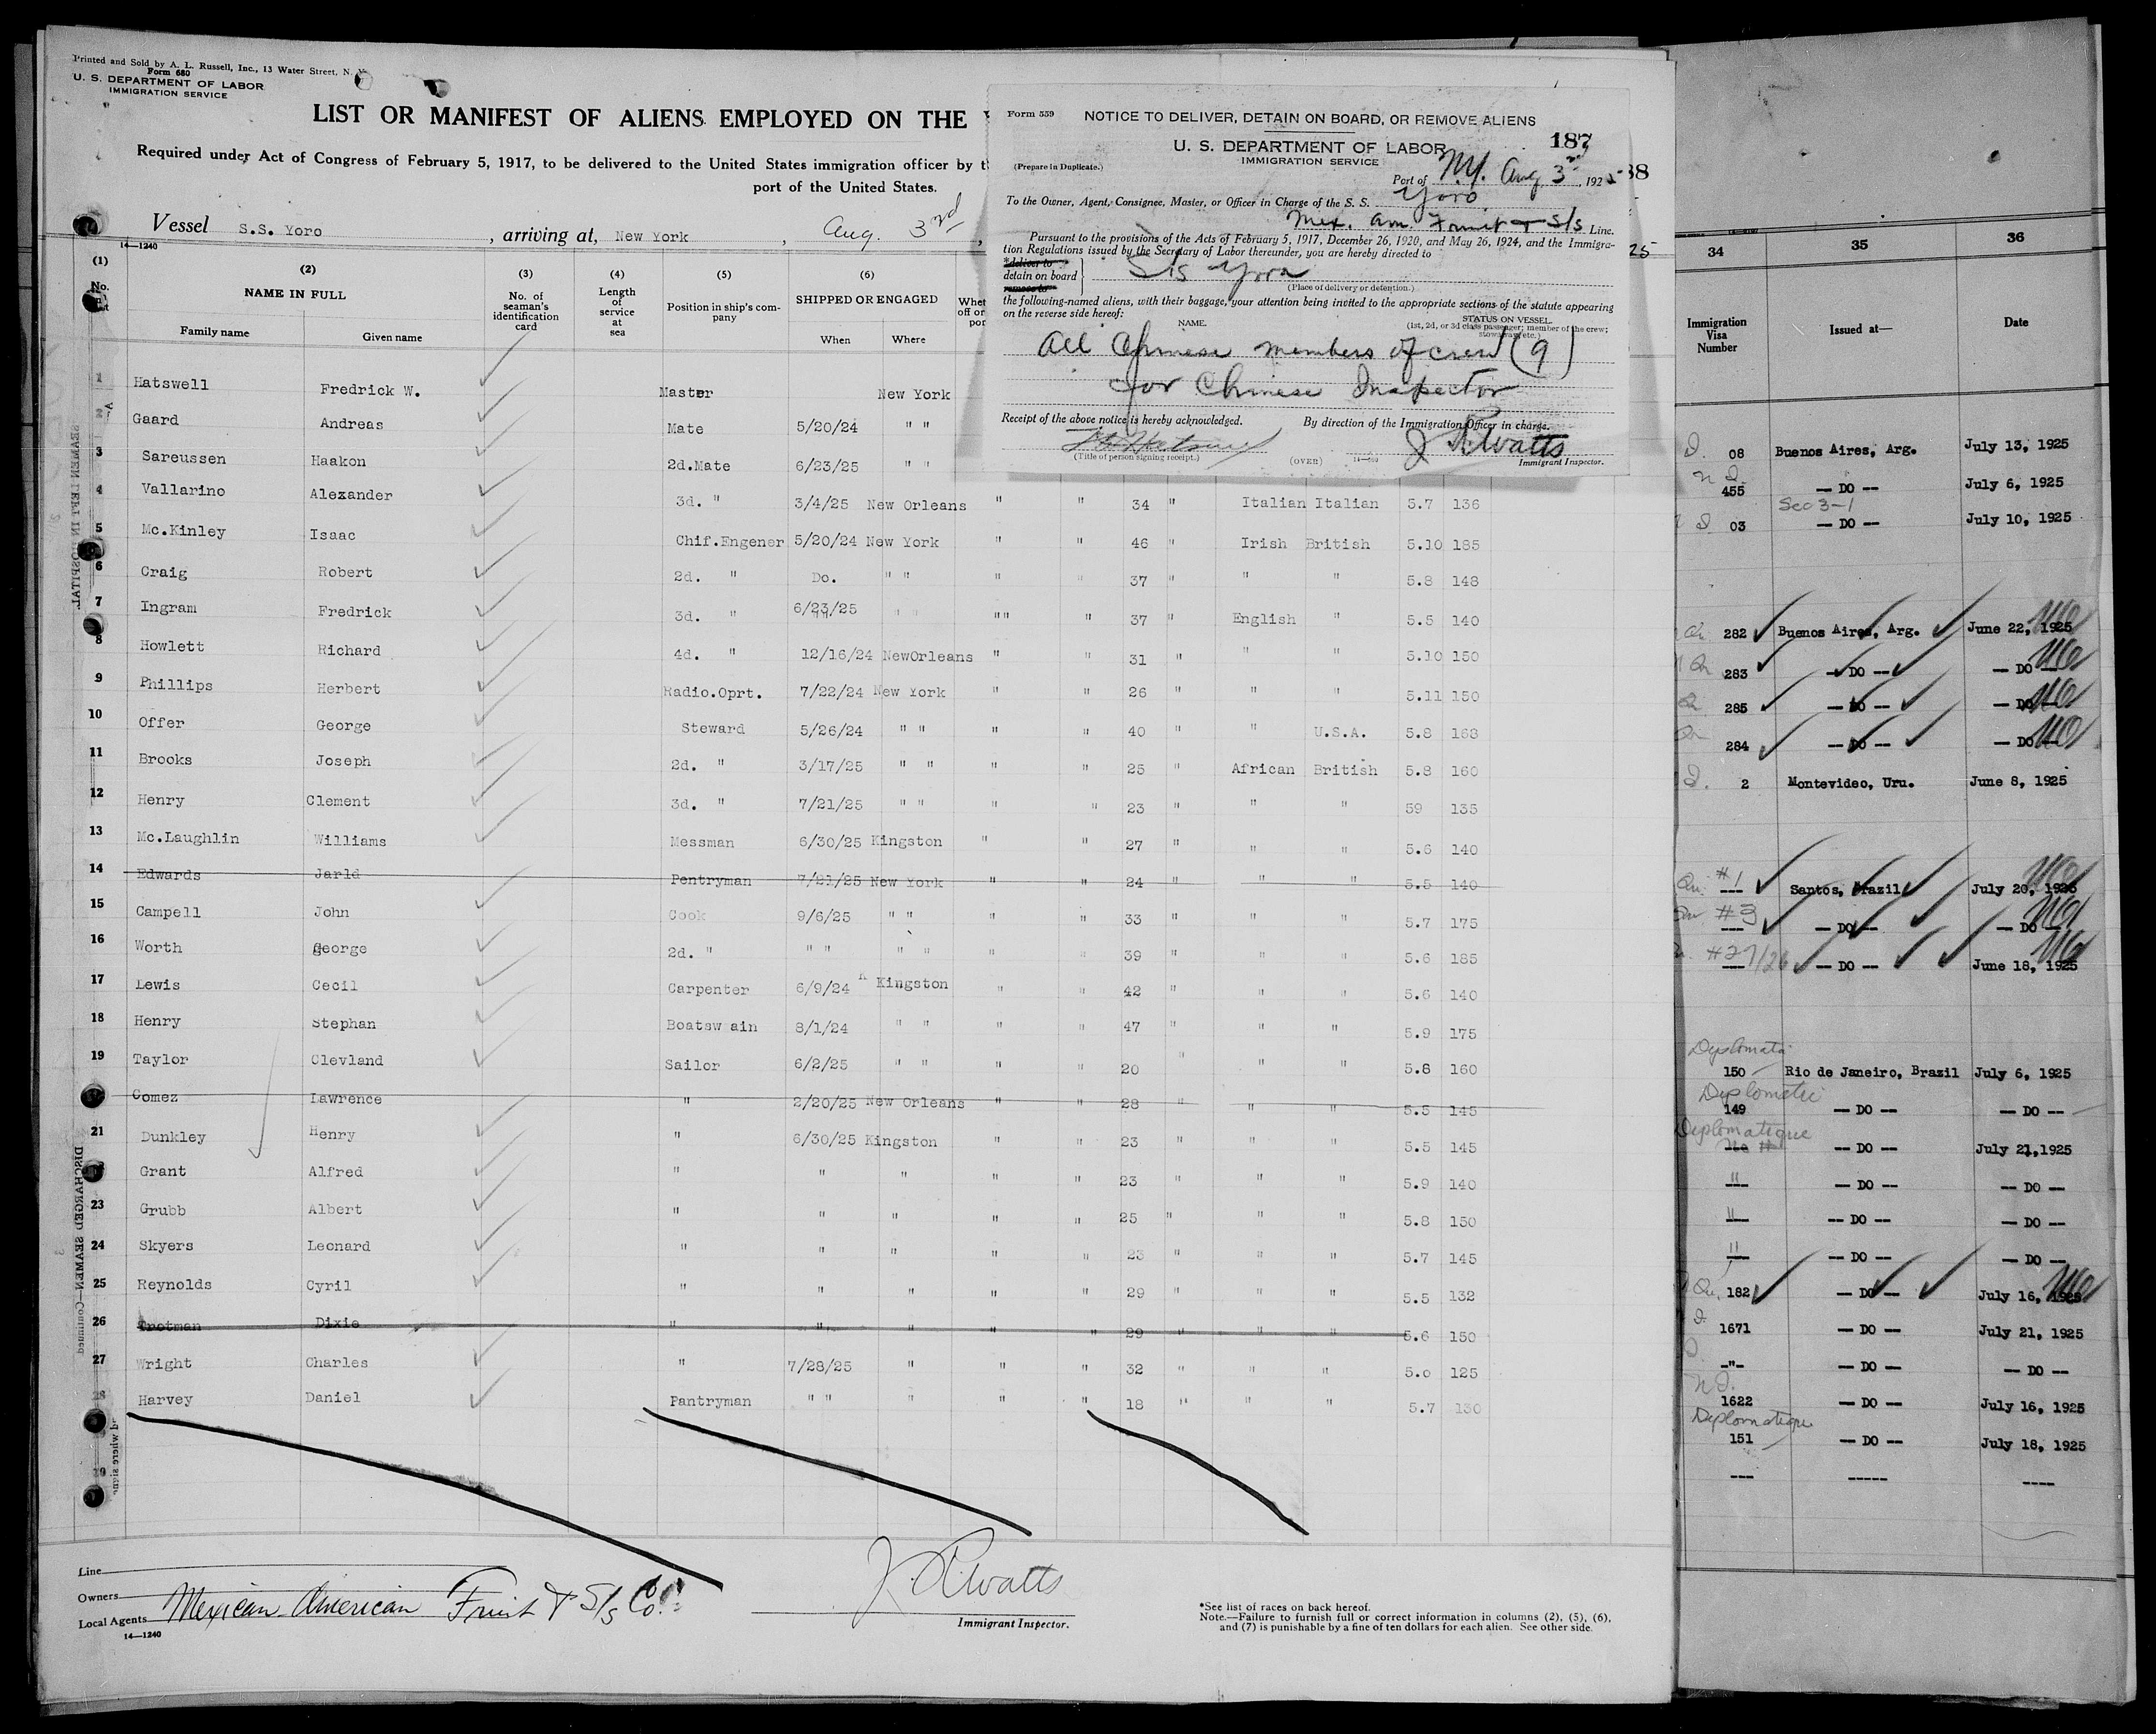 Printed and Sold by A. L. Russell, Inc., 13 Water Street, N. Y.
Form 680
U. S. DEPARTMENT OF LABOR
IMMIGRATION SERVICE
LIST OR MANIFEST OF ALIENS EMPLOYED ON THE
Required under Act of Congress of February 5, 1917, to be delivered to the United States immigration officer by
port of the United States.
Vessel S.S. Yoro , arriving at, New York , Aug. 3rd ,
14—1240
Form 559
NOTICE TO DELIVER, DETAIN ON BOARD, OR REMOVE ALIENS
187
U. S. DEPARTMENT OF LABOR
IMMIGRATION SERVICE
(Prepare in Duplicate.)
Port of N.Y. Aug 3rd, 1925
38
To the Owner, Agent, Consignee, Master, or Officer in Charge of the S. S. Yoro
Mex. Am. Fruit & S/S Line.
Pursuant to the provisions of the Acts of February 5, 1917, December 26, 1920, and May 26, 1924, and the Immigra-
tion Regulations issued by the Secretary of Labor thereunder, you are hereby directed to
25
*deliver to
detain on board S/S Yoro
remove to
(Place of delivery or detention.)
the following-named aliens, with their baggage, your attention being invited to the appropriate sections of the statute appearing
on the reverse side hereof:
NAME.
STATUS ON VESSEL
(1st, 2d, or 3d class passenger; member of the crew;
stowaway, etc.)
All Chinese members of crew (9)
for Chinese Inspector
Receipt of the above notice is hereby acknowledged.
By direction of the Immigration Officer in charge.
J R Watts
(Title of person signing receipt.)
(OVER)
Immigrant Inspector.
(1) (2) (3) (4) (5) (6)
No. NAME IN FULL No. of seaman's identification card Length of service at sea Position in ship's com-pany SHIPPED OR ENGAGED
Family name Given name When Where
1 Hatswell Fredrick W. Master New York
2 Gaard Andreas Mate 5/20/24 " "
3 Sareussen Haakon 2d.Mate 6/23/25 " "
4 Vallarino Alexander 3d. " 3/4/25 New Orleans " " 34 " Italian Italian 5.7 136
5 Mc.Kinley Isaac Chif.Engener 5/20/24 New York " " 46 " Irish British 5.10 185
6 Craig Robert 2d. " Do. " " " " 37 " " " 5.8 148
7 Ingram Fredrick 3d. " 6/23/25 " " "" " 37 " English " 5.5 140
8 Howlett Richard 4d. " 12/16/24 NewOrleans " " 31 " " " 5.10 150
9 Phillips Herbert Radio.Oprt. 7/22/24 New York " " 26 " " " 5.11 150
10 Offer George Steward 5/26/24 " " " " 40 " " U.S.A. 5.8 168
11 Brooks Joseph 2d. " 3/17/25 " " " " 25 " African British 5.8 160
12 Henry Clement 3d. " 7/21/25 " " " " 23 " " " 59 135
13 Mc.Laughlin Williams Messman 6/30/25 Kingston " " 27 " " " 5.6 140
14 Edwards Jarld Pentryman 7/21/25 New York " " 24 " " " 5.5 140
15 Campell John Cook 9/6/25 " " " " 33 " " " 5.7 175
16 Worth george 2d. " " " " " " " 39 " " " 5.6 185
17 Lewis Cecil Carpenter 6/9/24 K Kingston " " 42 " " " 5.6 140
18 Henry Stephan Boatsw ain 8/1/24 " " " " 47 " " " 5.9 175
19 Taylor Clevland Sailor 6/2/25 " " " " 20 " " " 5.8 160
Gomez Lawrence " 2/20/25 New Orleans " " 28 " " " 5.5 145
21 Dunkley Henry " 6/30/25 Kingston " " 23 " " " 5.5 145
Grant Alfred " " " " " 23 " " " 5.9 140
23 Grubb Albert " " " " " 25 " " " 5.8 150
24 Skyers Leonard " " " " " 23 " " " 5.7 145
25 Reynolds Cyril " " " " " 29 " " " 5.5 132
26 Trotman Dixie " " " " " 29 " " " 5.6 150
27 Wright Charles " 7/28/25 " " " 32 " " " 5.0 125
28 Harvey Daniel Pantryman " " " " " 18 " " " 5.7 130
29
Line
Owners
Local Agents Mexican American Fruit & S/S Co.
14—1240
J. R. Watts
Immigrant Inspector.
*See list of races on back hereof.
Note.—Failure to furnish full or correct information in columns (2), (5), (6),
and (7) is punishable by a fine of ten dollars for each alien. See other side.
34 35 36
Immigration Visa Number Issued at— Date
08 Buenos Aires, Arg. July 13, 1925
455 — DO — July 6, 1925
Sec 3-1
03 — DO — July 10, 1925
282 Buenos Aires, Arg. June 22, 1925
283 — DO — — DO —
285 — DO — — DO —
284 — DO — — DO —
2 Montevideo, Uru. June 8, 1925
#1 --- Santos, Brazil July 20, 1925
#3 --- — DO — — DO —
#27/26 --- — DO — June 18, 1925
Diplomatic
150 Rio de Janeiro, Brazil July 6, 1925
Diplomatic
149 — DO — — DO —
Diplomatique
— DO — July 21,1925
" — DO — — DO —
" — DO — — DO —
" — DO — — DO —
182 — DO — July 16, 1925
1671 — DO — July 21, 1925
-"- — DO — — DO —
1622 — DO — July 16, 1925
Diplomatique
151 — DO — July 18, 1925
--- ----- ----